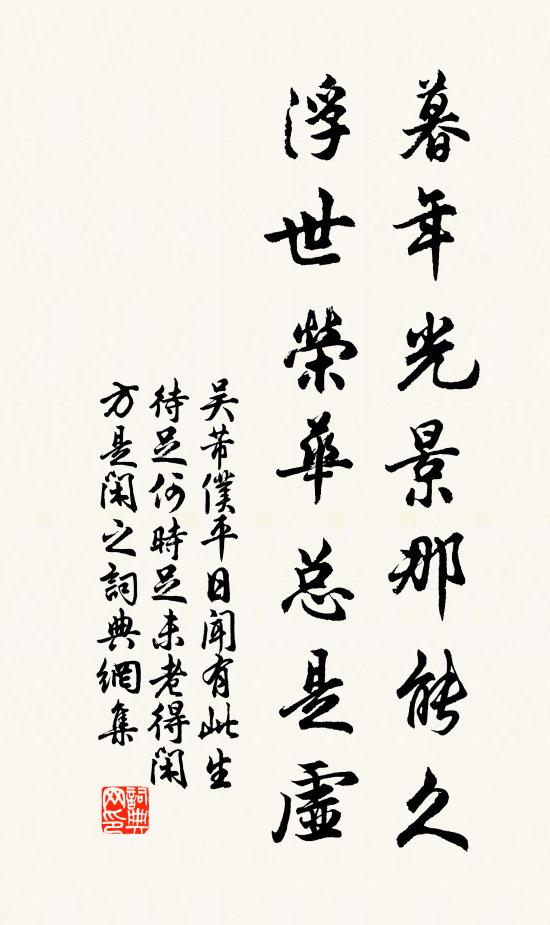 暮年光景那能久
浮世榮華总是虛
吴芾僕平日闻有此生
待足何時足未老得闲
方是闲之詞典網集
詞典网印